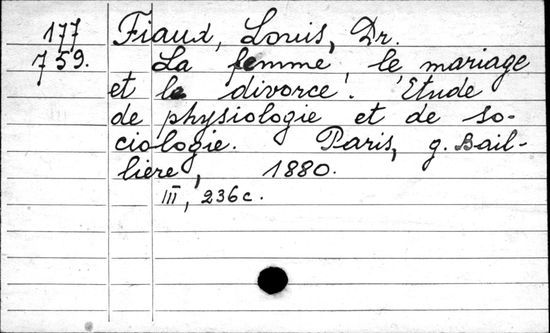 177
759.
Fiaux, Louis, Dr.
La femme, le mariage
et le divorce. Étude
de physiologie et de so-
ciologie. Paris, g. Bail-
liere, 1880.
III, 236 c.